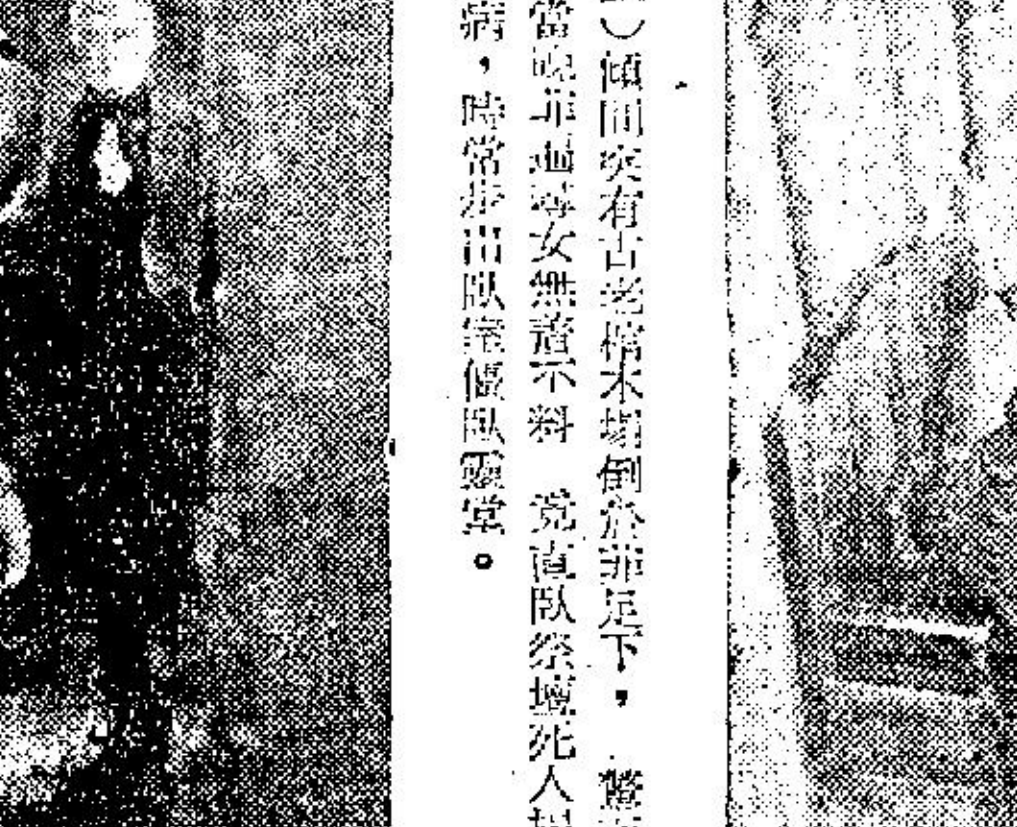 ）傾間突有古老棺木塌倒於菲足下，驚
當晚菲遍尋女無着不料 竟直臥祭壇死人
病，時常步出臥室偃臥靈堂。